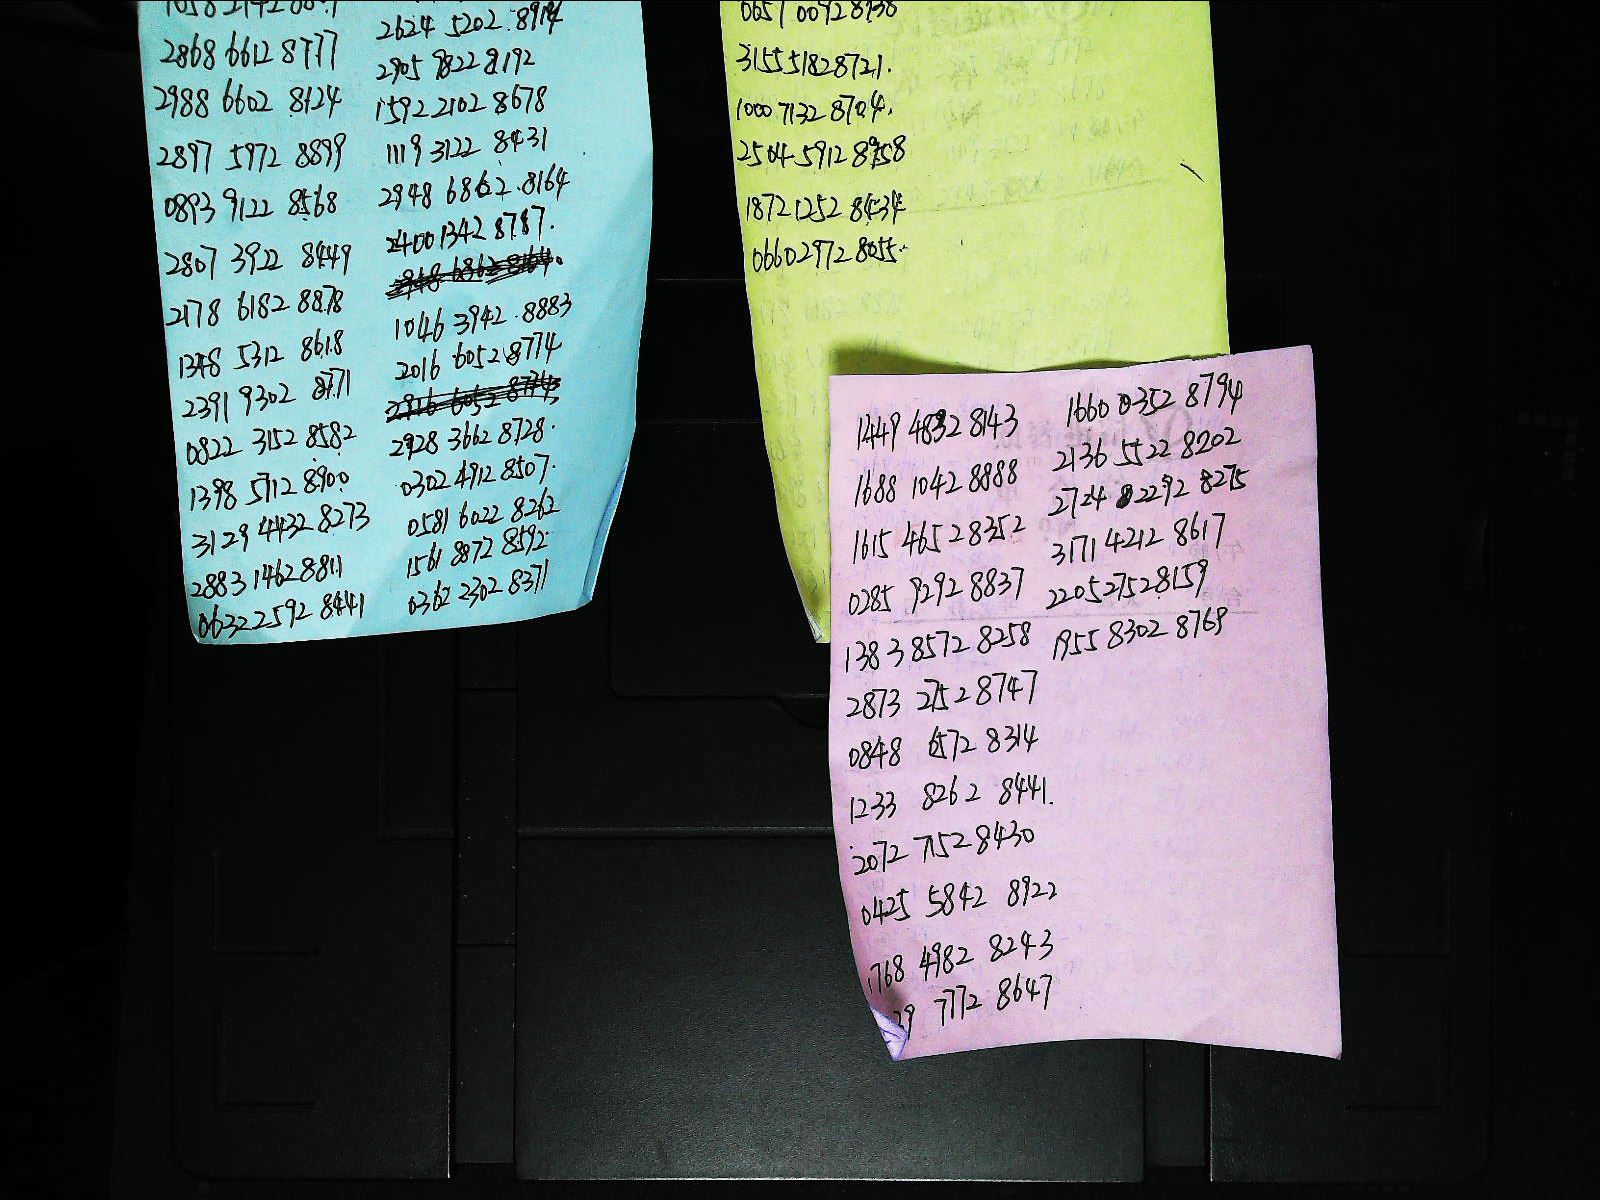 2868 6612 8777
2988 6602 8124
2897 5972 8899
0893 9122 8568
2807 3922 8449
2178 6182 8878
1348 5312 8618
2391 9302 8771
0822 3152 8582
1398 5712 8900
3129 4432 8273
2883 1462 8811
0632 2592 8441
2624 5202 8914
2905 9822 8192
1592 2102 8678
1119 3122 8431
2948 6862 8164
2400 1342 8787.
1046 3942 8883
2016 6052 8774
2928 3662 8728.
0302 4912 8507.
0581 6022 8262
1561 8872 8592.
0362 2302 8371
0651 0092 8738
3155 5182 8721.
1000 7132 8704.
2504 5912 8958
1872 1252 8434
0660 2972 8055.
1449 4832 8143
1688 1042 8888
1615 4652 8352
0285 9292 8837
1383 8572 8258
2873 2752 8747
0848 6572 8314
1233 8262 8441.
2072 7152 8430
0425 5842 8922
1768 4982 8243
29 7772 8647
1660 0352 8794
2136 5522 8202
2724 2292 8275
3171 4212 8617
2205 2752 8159
1955 8302 8769